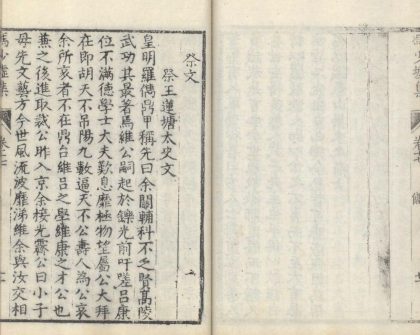 祭文
祭王蓮塘太史文
皇明羅儁鼎甲稱先曰余關輔科不乏賢高陵
武功其最著焉維公嗣起於鑠光前吁嗟呂康
位不滿德學士大夫歎息靡極物望屬公大拜
在即胡天不吊陽九數逅天不公壽人為公哀
余所哀者不在鼎台維呂之學維康之才公也
兼之後進取裁公昨入京余接先震公曰小子
毋先文藝方今世風流波靡涕維余與汝交相